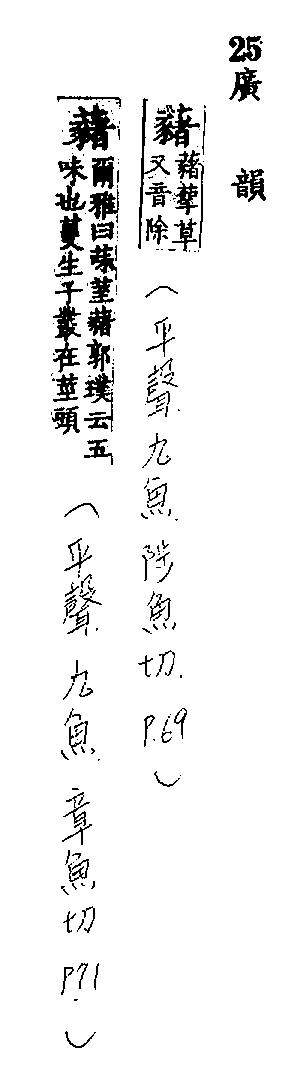 25 廣韻
藸 藸蒘草
又音除
(平聲 九魚 陟魚切 P.69)
藸 爾雅曰菋荎藸郭璞云五
味也蔓生子叢在莖頭
(平聲 九魚 章魚切 P.71)